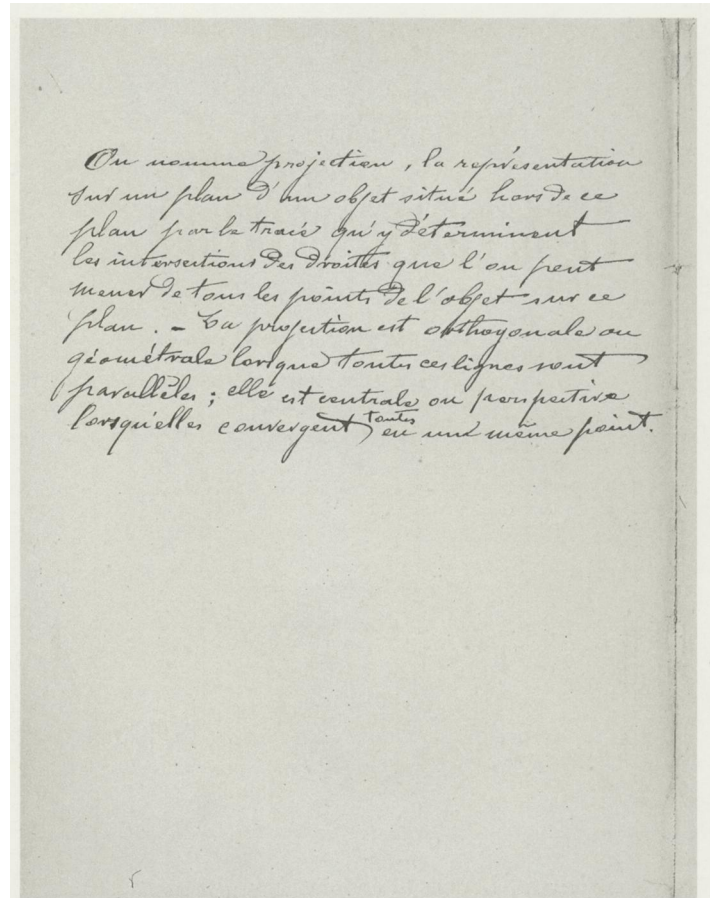 On nomme projection, la représentation
sur un plan d'un objet situé hors de ce
plan par le tracé qu'y déterminent
les intersections des droites que l'on peut
mener de tous les points de l'objet sur ce
plan. - La projection est orthogonale ou
géométrale lorsque toutes ces lignes sont
parallèles ; elle est centrale ou perspective
lorsqu'elles convergent toutes en un même point.